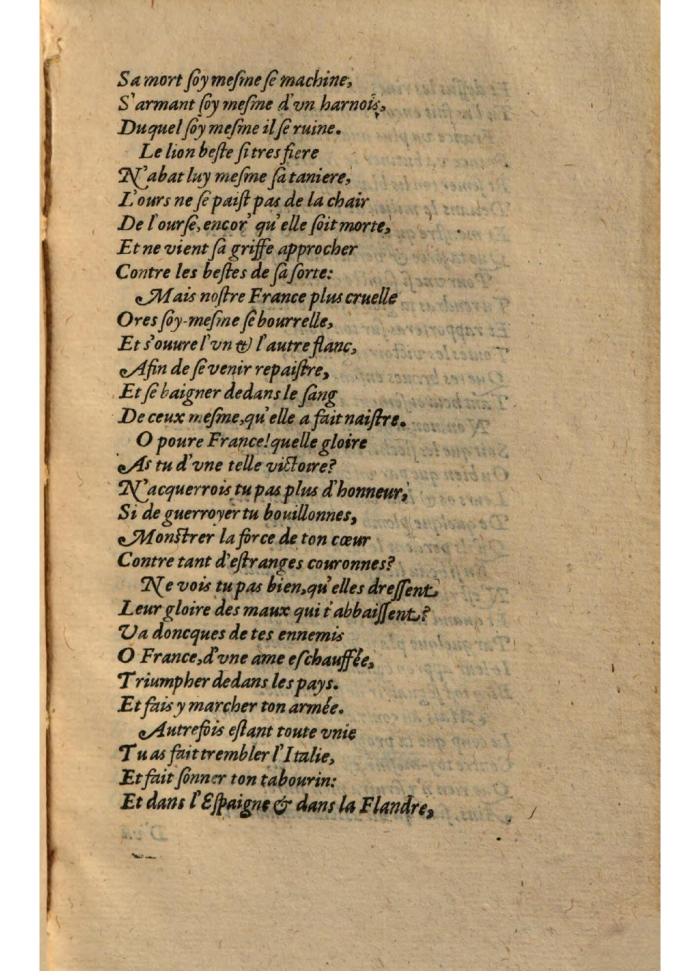 Sa mort ſoy meſme ſe machine,
S'armant ſoy meſme d'vn harnois,
Duquel ſoy meſme il ſe ruine.
Le lion beſte ſi tres fiere
N'abat luy meſme ſa taniere,
L'ours ne ſe paiſt pas de la chair
De l'ourſe, encor' qu'elle ſoit morte,
Et ne vient ſa griffe approcher
Contre les beſtes de ſa ſorte:
Mais noſtre France plus cruelle
Ores ſoy-meſme ſe bourrelle,
Et s'ouure l'vn & l'autre flanc,
Afin de ſe venir repaiſtre,
Et ſe baigner dedans le ſang
De ceux meſme, qu'elle a fait naiſtre.
O poure France! quelle gloire
As tu d'vne telle victoire?
N'acquerrois tu pas plus d'honneur,
Si de guerroyer tu bouillonnes,
Monſtrer la force de ton cœur
Contre tant d'eſtranges couronnes?
Ne vois tu pas bien, qu'elles dreſſent
Leur gloire des maux qui t'abbaiſſent?
Va doncques de tes ennemis
O France, d'vne ame eſchauffée,
Triumpher dedans les pays.
Et fais y marcher ton armée.
Autrefois eſtant toute vnie
Tu as fait trembler l'Italie,
Et fait ſonner ton tabourin:
Et dans l'Eſpaigne & dans la Flandre,